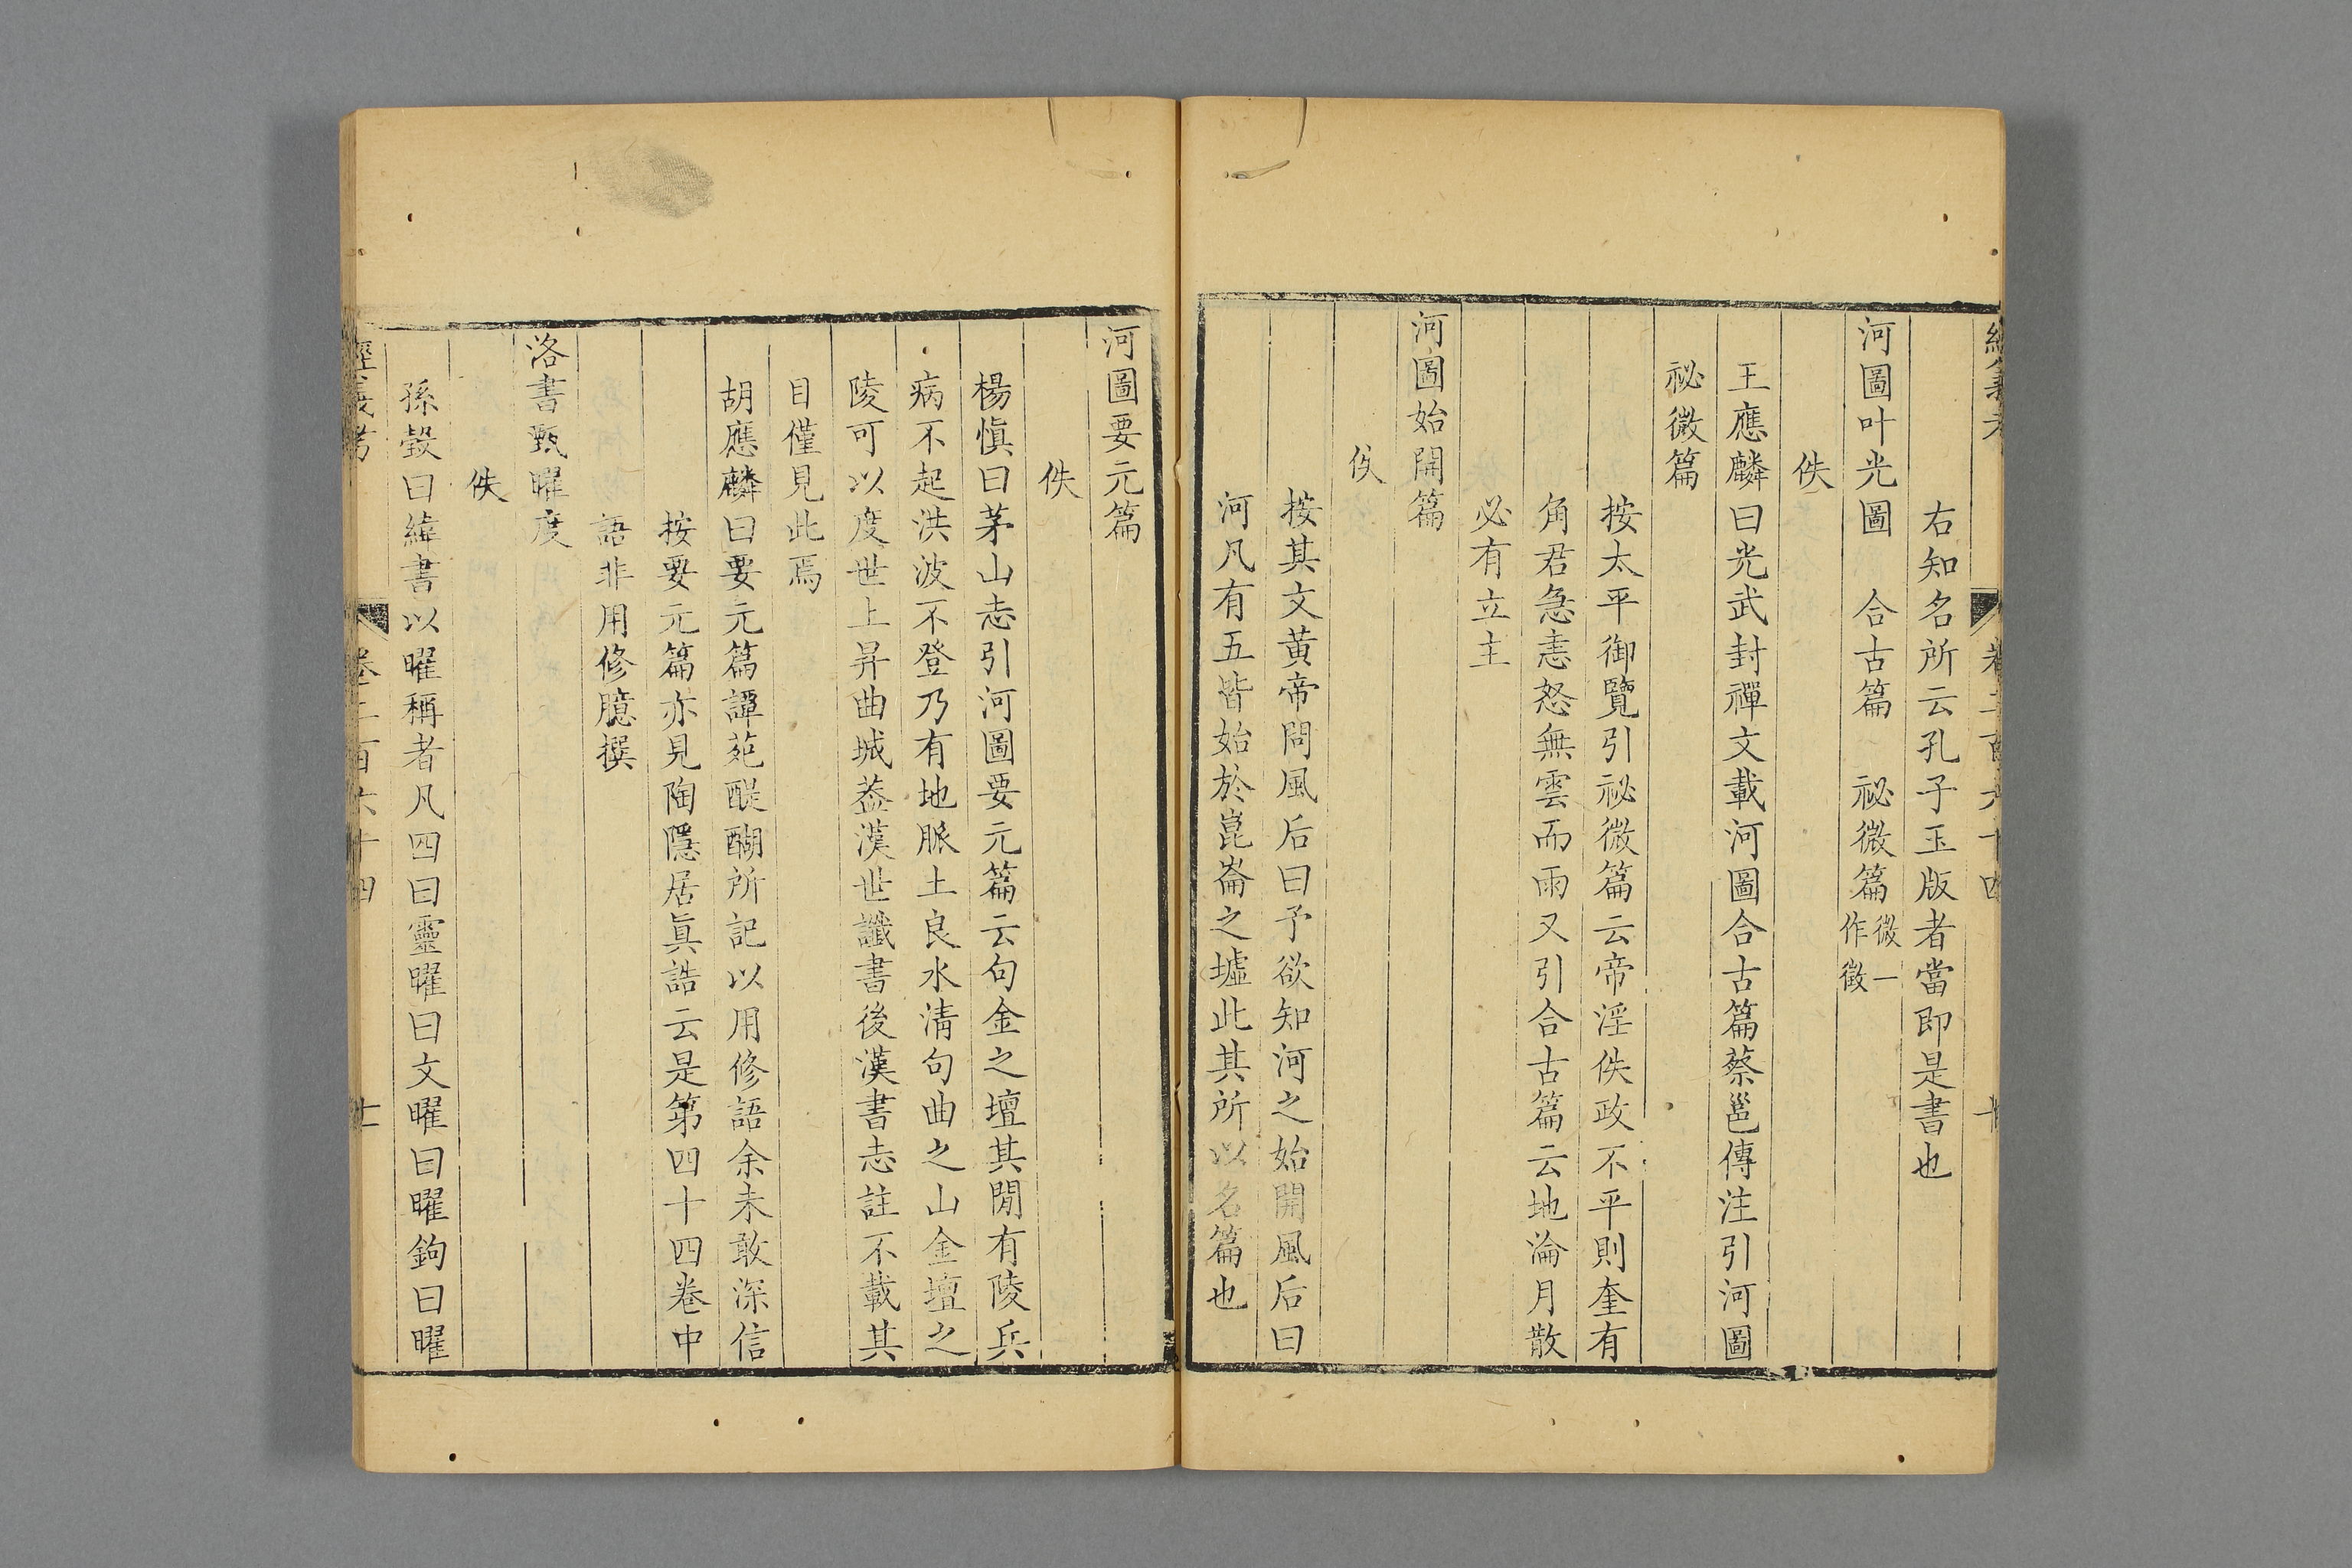 右知名所云孔子玉版者當即是書也
河圖叶光圖　合古篇　祕微篇微一作徵
佚
王應麟曰光武封禪文載河圖合古篇蔡邕傳注引河圖
祕微篇
按太平御覽引祕微篇云帝淫佚政不平則奎有
角君急恚怒無雲而雨又引合古篇云地淪月散
必有立主
河圖始開篇
佚
按其文黄帝問風后曰予欲知河之始開風后曰
河凡有五皆始於崑崙之墟此其所以名篇也
河圖要元篇
佚
楊愼曰茅山志引河圖要元篇云句金之壇其閒有陵兵
病不起洪波不登乃有地脈土良水淸句曲之山金壇之
陵可以度世上昇曲城葢漢世讖書後漢書志註不載其
目僅見此焉
胡應麟曰要元篇譚苑醍醐所記以用修語余未敢深信
按要元篇亦見陶隱居眞誥云是第四十四卷中
語非用修臆撰
洛書甄曜度
佚
孫瑴曰緯書以曜稱者凡四曰靈曜曰文曜曰曜鉤曰曜
經義考　卷二百六十四